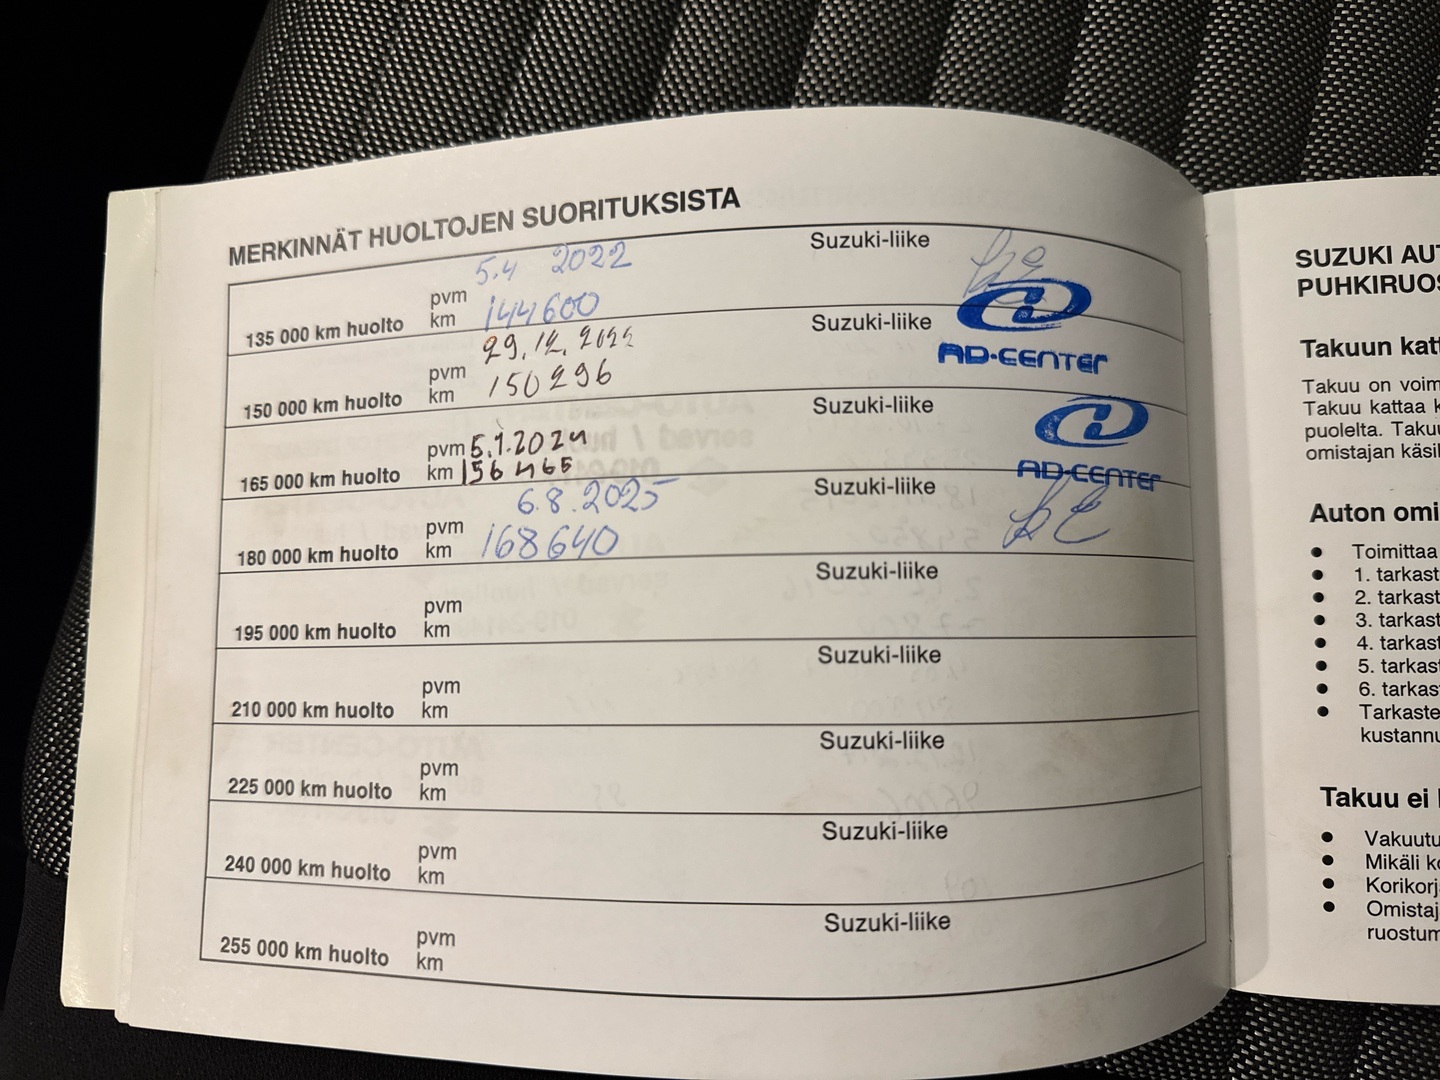 MERKINNÄT HUOLTOJEN SUORITUKSISTA
5.4 2022
Suzuki-liike
135 000 km huolto
pvm
km 144600
29.12.2022
Suzuki-liike
AD-CENTER
150 000 km huolto
pvm
km 150296
Suzuki-liike
165 000 km huolto
pvm 5.1.2024
km 156465
AD-CENTER
6.8.2025
Suzuki-liike
180 000 km huolto
pvm
km 168640
Suzuki-liike
195 000 km huolto
pvm
km
Suzuki-liike
210 000 km huolto
pvm
km
Suzuki-liike
225 000 km huolto
pvm
km
Suzuki-liike
240 000 km huolto
pvm
km
Suzuki-liike
255 000 km huolto
pvm
km
SUZUKI AUT
PUHKIRUOS
Takuun katt
Takuu on voim
Takuu kattaa k
puolelta. Takuu
omistajan käsil
Auton omi
• Toimittaa
• 1. tarkast
• 2. tarkast
• 3. tarkast
• 4. tarkast
• 5. tarkast
• 6. tarkas
• Tarkaste
kustannu
Takuu ei
• Vakuutu
• Mikäli ko
• Korikorj
• Omistaj
ruostum